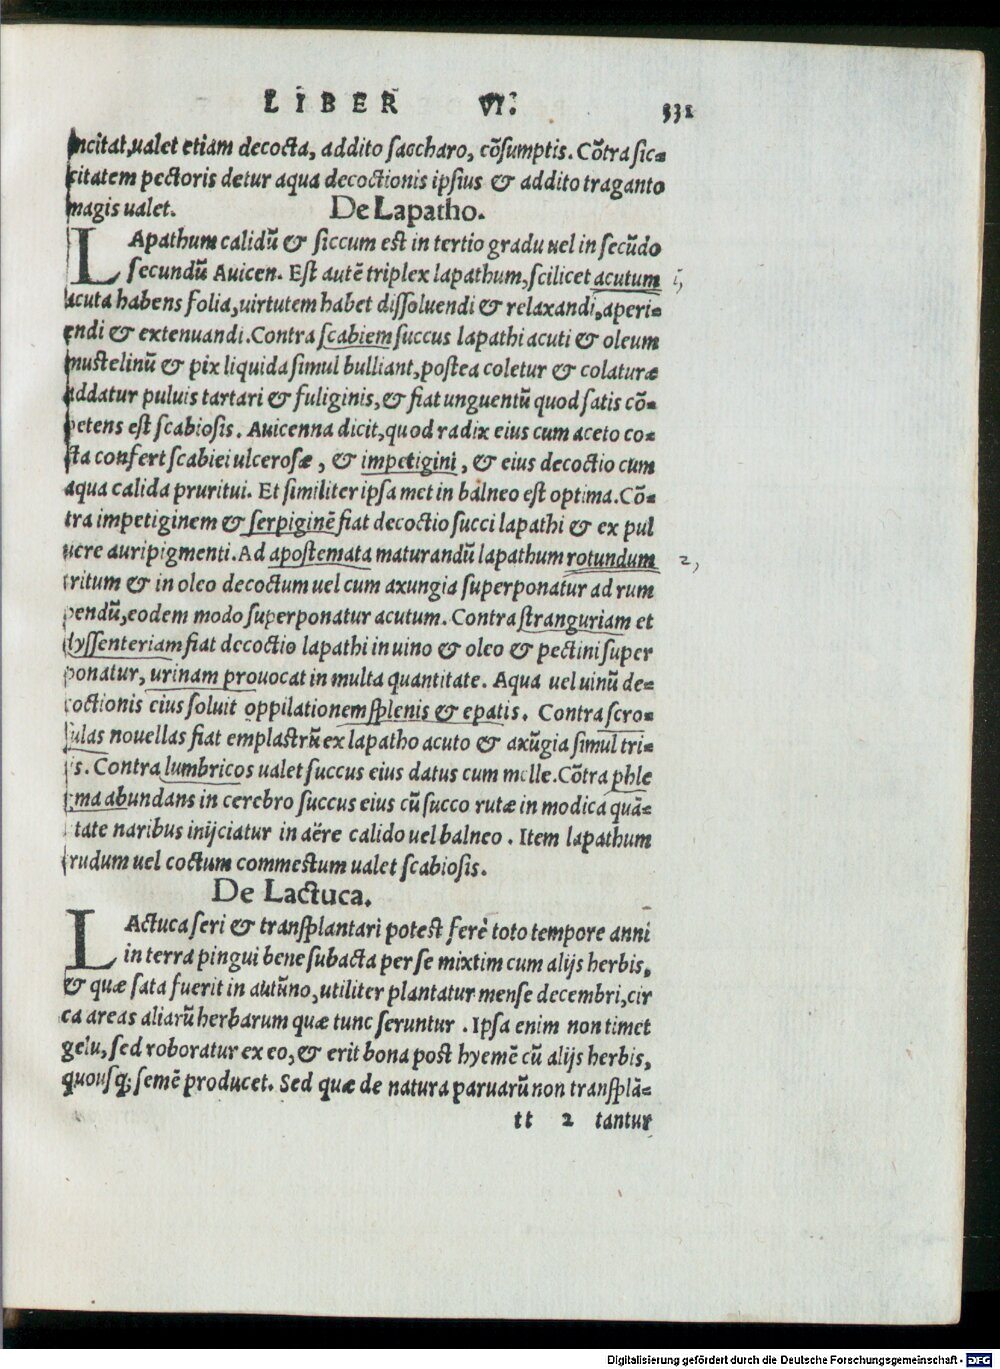 LIBER VI. 331
incitat, ualet etiam decocta, addito saccharo, cõsumptis. Cõtra sic=
citatem pectoris detur aqua decoctionis ipsius & addito traganto
magis ualet. De Lapatho.
LApathum calidũ & siccum est in tertio gradu uel in secũdo
secundũ Auicen. Est autẽ triplex lapathum, scilicet acutum 1,
acuta habens folia, uirtutem habet dissoluendi & relaxandi, aperi=
endi & extenuandi. Contra scabiem succus lapathi acuti & oleum
mustelinũ & pix liquida simul bulliant, postea coletur & colaturæ
addatur puluis tartari & fuliginis, & fiat unguentũ quod satis cõ=
petens est scabiosis. Auicenna dicit, quod radix eius cum aceto co=
cta confert scabiei ulcerosæ, & impetigini, & eius decoctio cum
aqua calida pruritui. Et similiter ipsa met in balneo est optima. Cõ=
tra impetiginem & serpiginẽ fiat decoctio succi lapathi & ex pul
uere auripigmenti. Ad apostemata maturandũ lapathum rotundum 2,
tritum & in oleo decoctum uel cum axungia superponatur ad rum
pendũ, eodem modo superponatur acutum. Contra stranguriam et
dyssenteriam fiat decoctio lapathi in uino & oleo & pectini super
ponatur, urinam prouocat in multa quantitate. Aqua uel uinũ de=
coctionis eius soluit oppilationem splenis & epatis. Contra scro=
fulas nouellas fiat emplastrũ ex lapatho acuto & axũgia simul tri=
is. Contra lumbricos ualet succus eius datus cum melle. Cõtra phle
gma abundans in cerebro succus eius cũ succo rutæ in modica quã=
titate naribus inijciatur in aëre calido uel balneo. Item lapathum
crudum uel coctum commestum ualet scabiosis.
De Lactuca.
LActuca seri & transplantari potest ferè toto tempore anni
in terra pingui bene subacta per se mixtim cum alijs herbis,
& quæ sata fuerit in autũno, utiliter plantatur mense decembri, cir
ca areas aliarũ herbarum quæ tunc seruntur. Ipsa enim non timet
gelu, sed roboratur ex eo, & erit bona post hyemẽ cũ alijs herbis,
quousq; semẽ producet. Sed quæ de natura paruarũ non transplã=
tt 2 tantur
Digitalisierung gefördert durch die Deutsche Forschungsgemeinschaft - DFG